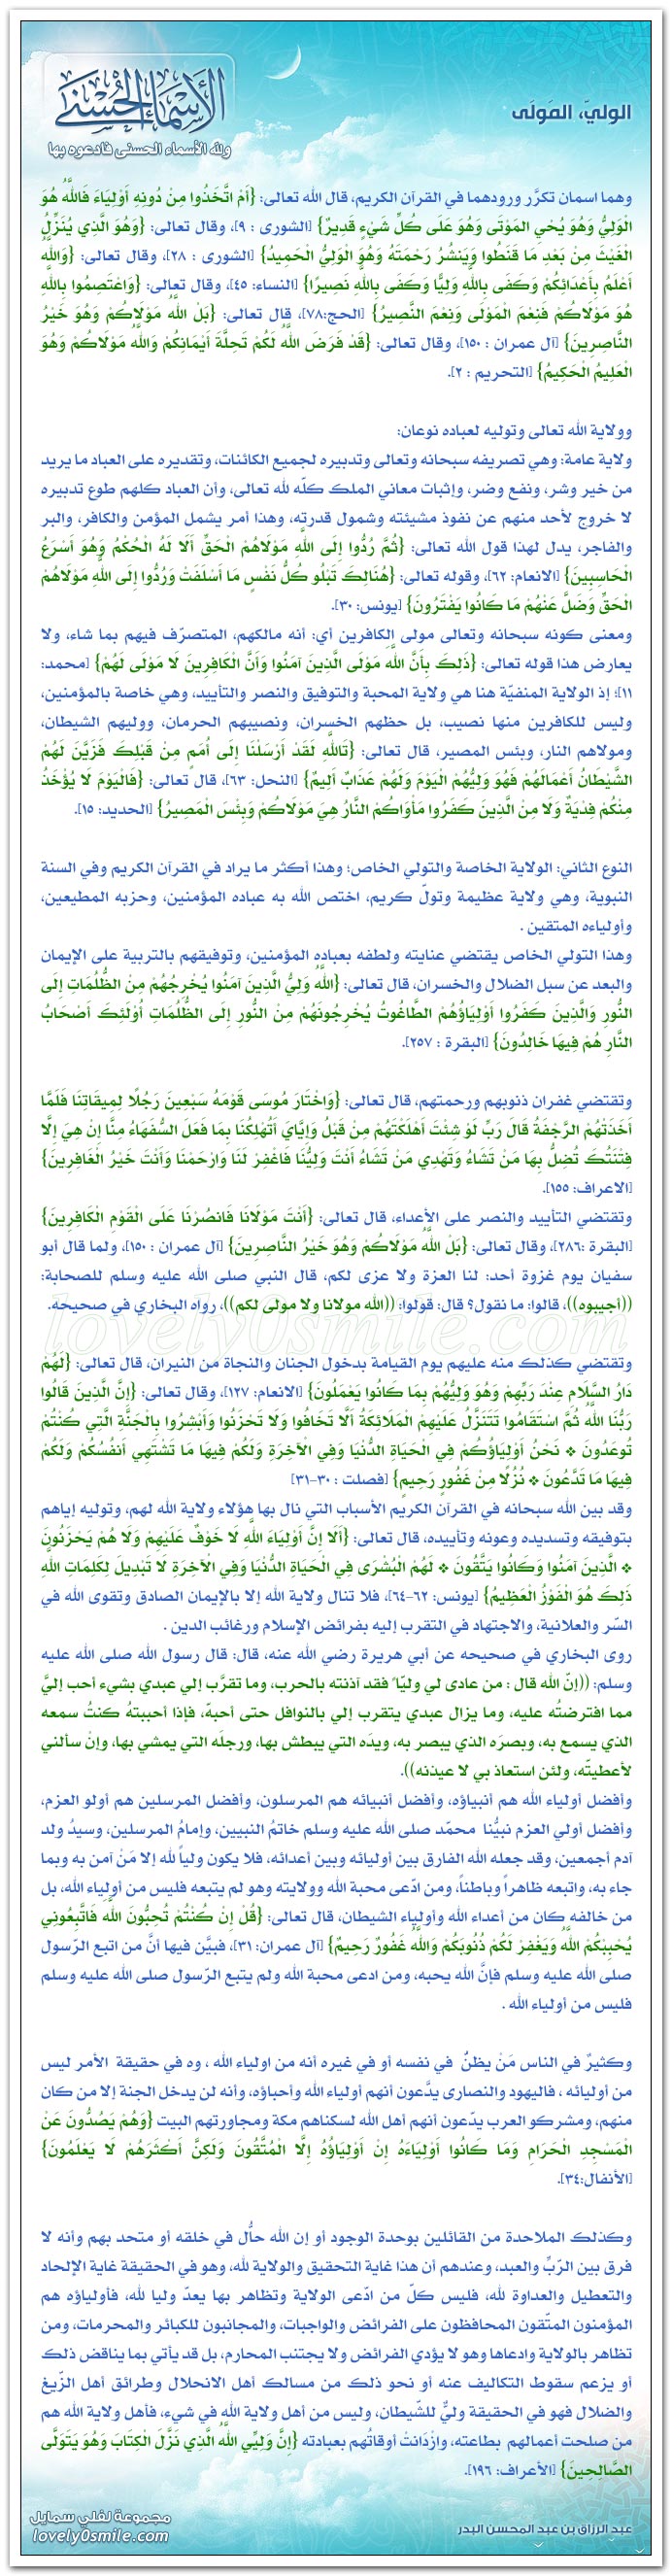 الأسماء الحسنى
ولله الأسماء الحسنى فادعوه بها
الوليّ، المَولَى
وهما اسمان تكرَّر ورودهما في القرآن الكريم، قال الله تعالى: {أَمْ اتَّخَذُوا مِنْ دُونِهِ أَوْلِيَاءَ فَاللَّهُ هُوَ
الْوَلِيُّ وَهُوَ يُحْيِ الْمَوْتَى وَهُوَ عَلَى كُلِّ شَيْءٍ قَدِيرٌ} [الشورى : ٩]، وقال تعالى: {وَهُوَ الَّذِي يُنَزِّلُ
الْغَيْثَ مِنْ بَعْدِ مَا قَنَطُوا وَيَنْشُرُ رَحْمَتَهُ وَهُوَ الْوَلِيُّ الْحَمِيدُ} [الشورى : ٢٨]، وقال تعالى: {وَاللَّهُ
أَعْلَمُ بِأَعْدَائِكُمْ وَكَفَى بِاللَّهِ وَلِيًّا وَكَفَى بِاللَّهِ نَصِيرًا} [النساء: ٤٥]، وقال تعالى: {وَاعْتَصِمُوا بِاللَّهِ
هُوَ مَوْلَاكُمْ فَنِعْمَ الْمَوْلَى وَنِعْمَ النَّصِيرُ} [الحج:٧٨]، قال تعالى: {بَلْ اللَّهُ مَوْلَاكُمْ وَهُوَ خَيْرُ
النَّاصِرِينَ} [آل عمران : ١٥٠]، وقال تعالى: {قَدْ فَرَضَ اللَّهُ لَكُمْ تَحِلَّةَ أَيْمَانِكُمْ وَاللَّهُ مَوْلَاكُمْ وَهُوَ
الْعَلِيمُ الْحَكِيمُ} [التحريم : ٢].
وولاية الله تعالى وتوليه لعباده نوعان:
ولاية عامة: وهي تصريفه سبحانه وتعالى وتدبيره لجميع الكائنات، وتقديره على العباد ما يريد
من خير وشر، ونفع وضر، وإثبات معاني الملك كلّه لله تعالى، وأن العباد كلهم طوع تدبيره
لا خروج لأحد منهم عن نفوذ مشيئته وشمول قدرته، وهذا أمر يشمل المؤمن والكافر، والبر
والفاجر، يدل لهذا قول الله تعالى: {ثُمَّ رُدُّوا إِلَى اللَّهِ مَوْلَاهُمْ الْحَقِّ أَلَا لَهُ الْحُكْمُ وَهُوَ أَسْرَعُ
الْحَاسِبِينَ} [الانعام: ٦٢]، وقوله تعالى: {هُنَالِكَ تَبْلُو كُلُّ نَفْسٍ مَا أَسْلَفَتْ وَرُدُّوا إِلَى اللَّهِ مَوْلَاهُمْ
الْحَقِّ وَضَلَّ عَنْهُمْ مَا كَانُوا يَفْتَرُونَ} [يونس: ٣٠].
ومعنى كونه سبحانه وتعالى مولى الكافرين أي: أنه مالكهم، المتصرّف فيهم بما شاء، ولا
يعارض هذا قوله تعالى: {ذَلِكَ بِأَنَّ اللَّهَ مَوْلَى الَّذِينَ آمَنُوا وَأَنَّ الْكَافِرِينَ لَا مَوْلَى لَهُمْ} [محمد:
١١]؛ إذ الولاية المنفيّة هنا هي ولاية المحبة والتوفيق والنصر والتأييد، وهي خاصة بالمؤمنين،
وليس للكافرين منها نصيب، بل حظهم الخسران، ونصيبهم الحرمان، ووليهم الشيطان،
ومولاهم النار، وبئس المصير، قال تعالى: {تَاللَّهِ لَقَدْ أَرْسَلْنَا إِلَى أُمَمٍ مِنْ قَبْلِكَ فَزَيَّنَ لَهُمْ
الشَّيْطَانُ أَعْمَالَهُمْ فَهُوَ وَلِيُّهُمْ الْيَوْمَ وَلَهُمْ عَذَابٌ أَلِيمٌ} [النحل: ٦٣]، قال تعالى: {فَالْيَوْمَ لَا يُؤْخَذُ
مِنْكُمْ فِدْيَةٌ وَلَا مِنْ الَّذِينَ كَفَرُوا مَأْوَاكُمْ النَّارُ هِيَ مَوْلَاكُمْ وَبِئْسَ الْمَصِيرُ} [الحديد: ١٥].
النوع الثاني: الولاية الخاصة والتولي الخاص؛ وهذا أكثر ما يراد في القرآن الكريم وفي السنة
النبوية، وهي ولاية عظيمة وتولّ كريم، اختص الله به عباده المؤمنين، وحزبه المطيعين،
وأولياءه المتقين .
وهذا التولي الخاص يقتضي عنايته ولطفه بعباده المؤمنين، وتوفيقهم بالتربية على الإيمان
والبعد عن سبل الضلال والخسران، قال تعالى: {اللَّهُ وَلِيُّ الَّذِينَ آمَنُوا يُخْرِجُهُمْ مِنْ الظُّلُمَاتِ إِلَى
النُّورِ وَالَّذِينَ كَفَرُوا أَوْلِيَاؤُهُمْ الطَّاغُوتُ يُخْرِجُونَهُمْ مِنَ النُّورِ إِلَى الظُّلُمَاتِ أُوْلَئِكَ أَصْحَابُ
النَّارِ هُمْ فِيهَا خَالِدُونَ} [البقرة : ٢٥٧].
وتقتضي غفران ذنوبهم ورحمتهم، قال تعالى: {وَاخْتَارَ مُوسَى قَوْمَهُ سَبْعِينَ رَجُلًا لِمِيقَاتِنَا فَلَمَّا
أَخَذَتْهُمْ الرَّجْفَةُ قَالَ رَبِّ لَوْ شِئْتَ أَهْلَكْتَهُمْ مِنْ قَبْلُ وَإِيَّايَ أَتُهْلِكُنَا بِمَا فَعَلَ السُّفَهَاءُ مِنَّا إِنْ هِيَ إِلَّا
فِتْنَتُكَ تُضِلُّ بِهَا مَنْ تَشَاءُ وَتَهْدِي مَنْ تَشَاءُ أَنْتَ وَلِيُّنَا فَاغْفِرْ لَنَا وَارْحَمْنَا وَأَنْتَ خَيْرُ الْغَافِرِينَ}
[الاعراف: ١٥٥].
وتقتضي التأييد والنصر على الأعداء، قال تعالى: {أَنْتَ مَوْلَانَا فَانصُرْنَا عَلَى الْقَوْمِ الْكَافِرِينَ}
[البقرة :٢٨٦]، وقال تعالى: {بَلْ اللَّهُ مَوْلَاكُمْ وَهُوَ خَيْرُ النَّاصِرِينَ} [آل عمران : ١٥٠]، ولما قال أبو
سفيان يوم غزوة أحد: لنا العزة ولا عزى لكم، قال النبي صلى الله عليه وسلم للصحابة:
((أجيبوه))، قالوا: ما نقول؟ قال: قولوا: ((الله مولانا ولا مولى لكم))، رواه البخاري في صحيحه.
وتقتضي كذلك منه عليهم يوم القيامة بدخول الجنان والنجاة من النيران، قال تعالى: {لَهُمْ
دَارُ السَّلَامِ عِنْدَ رَبِّهِمْ وَهُوَ وَلِيُّهُمْ بِمَا كَانُوا يَعْمَلُونَ} [الانعام: ١٢٧]، وقال تعالى: {إِنَّ الَّذِينَ قَالُوا
رَبُّنَا اللَّهُ ثُمَّ اسْتَقَامُوا تَتَنَزَّلُ عَلَيْهِمْ الْمَلَائِكَةُ أَلَّا تَخَافُوا وَلَا تَحْزَنُوا وَأَبْشِرُوا بِالْجَنَّةِ الَّتِي كُنْتُمْ
تُوعَدُونَ * نَحْنُ أَوْلِيَاؤُكُمْ فِي الْحَيَاةِ الدُّنْيَا وَفِي الْآخِرَةِ وَلَكُمْ فِيهَا مَا تَشْتَهِي أَنفُسُكُمْ وَلَكُمْ
فِيهَا مَا تَدَّعُونَ * نُزُلًا مِنْ غَفُورٍ رَحِيمٍ} [فصلت : ٣٠-٣١]
وقد بين الله سبحانه في القرآن الكريم الأسباب التي نال بها هؤلاء ولاية الله لهم، وتوليه إياهم
بتوفيقه وتسديده وعونه وتأييده، قال تعالى: {أَلَا إِنَّ أَوْلِيَاءَ اللَّهِ لَا خَوْفٌ عَلَيْهِمْ وَلَا هُمْ يَحْزَنُونَ
* الَّذِينَ آمَنُوا وَكَانُوا يَتَّقُونَ * لَهُمْ الْبُشْرَى فِي الْحَيَاةِ الدُّنْيَا وَفِي الْآخِرَةِ لَا تَبْدِيلَ لِكَلِمَاتِ اللَّهِ
ذَلِكَ هُوَ الْفَوْزُ الْعَظِيمُ} [يونس: ٦٢-٦٤]، فلا تنال ولاية الله إلا بالإيمان الصادق وتقوى الله في
السّر والعلانية، والاجتهاد في التقرب إليه بفرائض الإسلام ورغائب الدين .
روى البخاري في صحيحه عن أبي هريرة رضي الله عنه، قال: قال رسول الله صلى الله عليه
وسلم: ((إنّ الله قال : من عادى لي وليّاً فقد آذنته بالحرب، وما تقرَّب إلي عبدي بشيء أحب إليَّ
مما افترضتُه عليه، وما يزال عبدي يتقرب إلي بالنوافل حتى أحبهّ، فإذا أحببتهُ كنتُ سمعه
الذي يسمع به، وبصرَه الذي يبصر به، ويدَه التي يبطش بها، ورجلَه التي يمشي بها، وإنْ سألني
لأعطيتّه، ولئن استعاذ بي لا عيذنه)).
وأفضل أولياء الله هم أنبياؤه، وأفضل أنبيائه هم المرسلون، وأفضل المرسلين هم أولو العزم،
وأفضل أولي العزم نبيُّنا محمّد صلى الله عليه وسلم خاتمُ النبيين، وإمامُ المرسلين، وسيدُ ولد
آدم أجمعين، وقد جعله الله الفارق بين أوليائه وبين أعدائه، فلا يكون ولياً لله إلا مَنْ آمن به وبما
جاء به، واتبعه ظاهراً وباطناً، ومن ادّعى محبة الله وولايته وهو لم يتبعه فليس من أولياء الله، بل
من خالفه كان من أعداء الله وأولياء الشيطان، قال تعالى: {قُلْ إِنْ كُنْتُمْ تُحِبُّونَ اللَّهَ فَاتَّبِعُونِي
يُحْبِبْكُمْ اللَّهُ وَيَغْفِرْ لَكُمْ ذُنُوبَكُمْ وَاللَّهُ غَفُورٌ رَحِيمٌ} [آل عمران: ٣١]، فبيَّن فيها أنَّ من اتبع الرّسول
صلى الله عليه وسلم فإنَّ الله يحبه، ومن ادعى محبة الله ولم يتبع الرّسول صلى الله عليه وسلم
فليس من أولياء الله .
وكثيرٌ في الناس مَنْ يظنٌ في نفسه أو في غيره أنه من اولياء الله ، وه في حقيقة الأمر ليس
من أوليائه ، فاليهود والنصارى يدَّعون أنهم أولياء الله وأحباؤه، وأنه لن يدخل الجنة إلا من كان
منهم، ومشركو العرب يدّعون أنهم أهل الله لسكناهم مكة ومجاورتهم البيت {وَهُمْ يَصُدُّونَ عَنْ
الْمَسْجِدِ الْحَرَامِ وَمَا كَانُوا أَوْلِيَاءَهُ إِنْ أَوْلِيَاؤُهُ إِلَّا الْمُتَّقُونَ وَلَكِنَّ أَكْثَرَهُمْ لَا يَعْلَمُونَ}
[الأنفال:٣٤].
وكذلك الملاحدة من القائلين بوحدة الوجود أو إن الله حاٌّل في خلقه أو متحد بهم وأنه لا
فرق بين الرّبِّ والعبد، وعندهم أن هذا غاية التحقيق والولاية لله، وهو في الحقيقة غاية الإلحاد
والتعطيل والعداوة لله، فليس كلّ من ادّعى الولاية وتظاهر بها يعدّ وليا لله، فأولياؤه هم
المؤمنون المتّقون المحافظون على الفرائض والواجبات، والمجانبون للكبائر والمحرمات، ومن
تظاهر بالولاية وادعاها وهو لا يؤدي الفرائض ولا يجتنب المحارم، بل قد يأتي بما يناقض ذلك
أو يزعم سقوط التكاليف عنه أو نحو ذلك من مسالك أهل الانحلال وطرائق أهل الزّيغ
والضلال فهو في الحقيقة وليٌّ للشّيطان، وليس من أهل ولاية الله في شيء، فأهل ولاية الله هم
من صلحت أعمالهم بطاعته، وازْدَانت أوقاتُهم بعبادته {إِنَّ وَلِيِّي اللَّهُ الَّذِي نَزَّلَ الْكِتَابَ وَهُوَ يَتَوَلَّى
الصَّالِحِينَ} [الأعراف: ١٩٦].
عبد الرزاق بن عبد المحسن البدر
مجموعة لفلي سمايل
lovely0smile.com